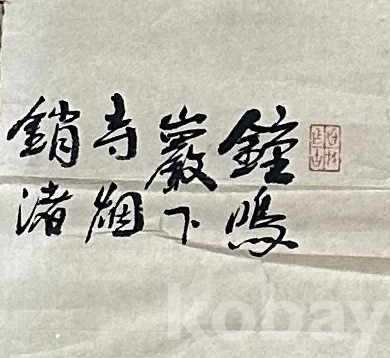 鐘鳴
巖下
寺烟
銷渚
kobay